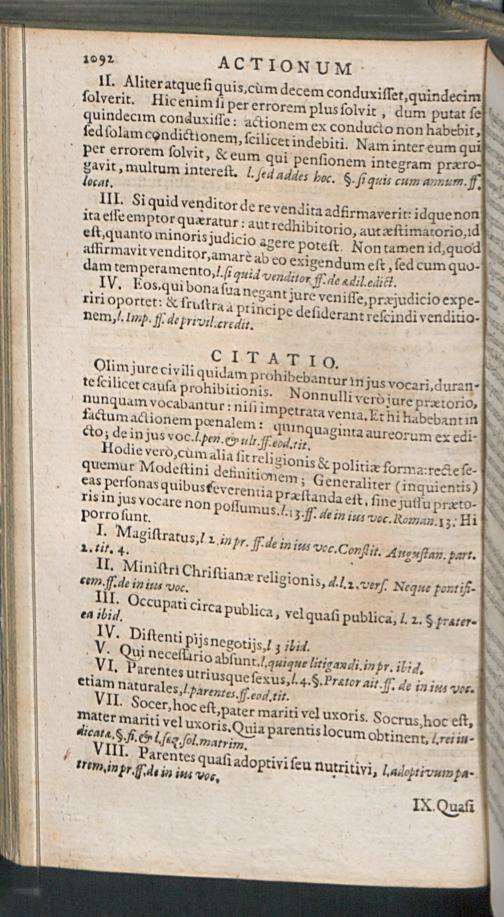 1092 ACTIONUM
II. Aliter atque si quis, cùm decem conduxisset, quindecim
solverit. Hic enim si per errorem plus solvit, dum putat se
quindecim conduxisse: actionem ex conducto non habebit,
sed solam condictionem, scilicet indebiti. Nam inter eum qui
per errorem solvit, & eum qui pensionem integram præro-
gavit, multum interest. l. sed addes hoc. §. si quis cum annum. ff.
locat.
III. Si quid venditor de re vendita adfirmaverit: idque non
ita esse emptor quæratur: aut redhibitorio, aut æstimatorio, id
est, quanto minoris judicio agere potest. Non tamen id, quod
affirmavit venditor, amarè ab eo exigendum est, sed cum quo-
dam temperamento, l. si quid venditor ff. de ædil. edict.
IV. Eos, qui bona sua negant jure venisse, præjudicio expe-
riri oportet: & frustra à principe desiderant rescindi venditio-
nem, l. Imp. ff. de privil. credit.
CITATIO.
Olim jure civili quidam prohibebantur in jus vocari, duran-
te scilicet causa prohibitionis. Nonnulli verò jure prætorio,
nunquam vocabantur: nisi impetrata venia. Et hi habebant in
factum actionem pœnalem: quinquaginta aureorum ex edi-
cto; de in jus voc. l. pen. & ult. ff. eod. tit.
Hodie verò, cùm alia sit religionis & politiæ forma: recte se-
quemur Modestini definitionem; Generaliter (inquientis)
eas personas quibus reverentia præstanda est, sine jussu præto-
ris in jus vocare non possumus. l. 13. ff. de in ius voc. Roman. 13: Hi
porro sunt.
I. Magistratus, l 2. in pr. ff. de in ius voc. Constit. Augustan. part.
2. tit. 4.
II. Ministri Christianæ religionis, d. l. 2. vers. Neque pontifi-
cem. ff. de in ius voc.
III. Occupati circa publica, vel quasi publica, l. 2. § præter-
ea ibid.
IV. Distenti pijs negotijs, l 3 ibid.
V. Qui necessario absunt, l. quique litigandi. in pr. ibid.
VI. Parentes utriusque sexus, l. 4. §. Prætor ait. ff. de in ius voc.
etiam naturales, l. parentes. ff. eod. tit.
VII. Socer, hoc est, pater mariti vel uxoris. Socrus, hoc est,
mater mariti vel uxoris. Quia parentis locum obtinent, l. rei iu-
dicatæ, §. fi. & l. seq. sol. matrim.
VIII. Parentes quasi adoptivi seu nutritivi, l. adoptivum pa-
trem, in pr. ff. de in ius voc,
IX. Quasi